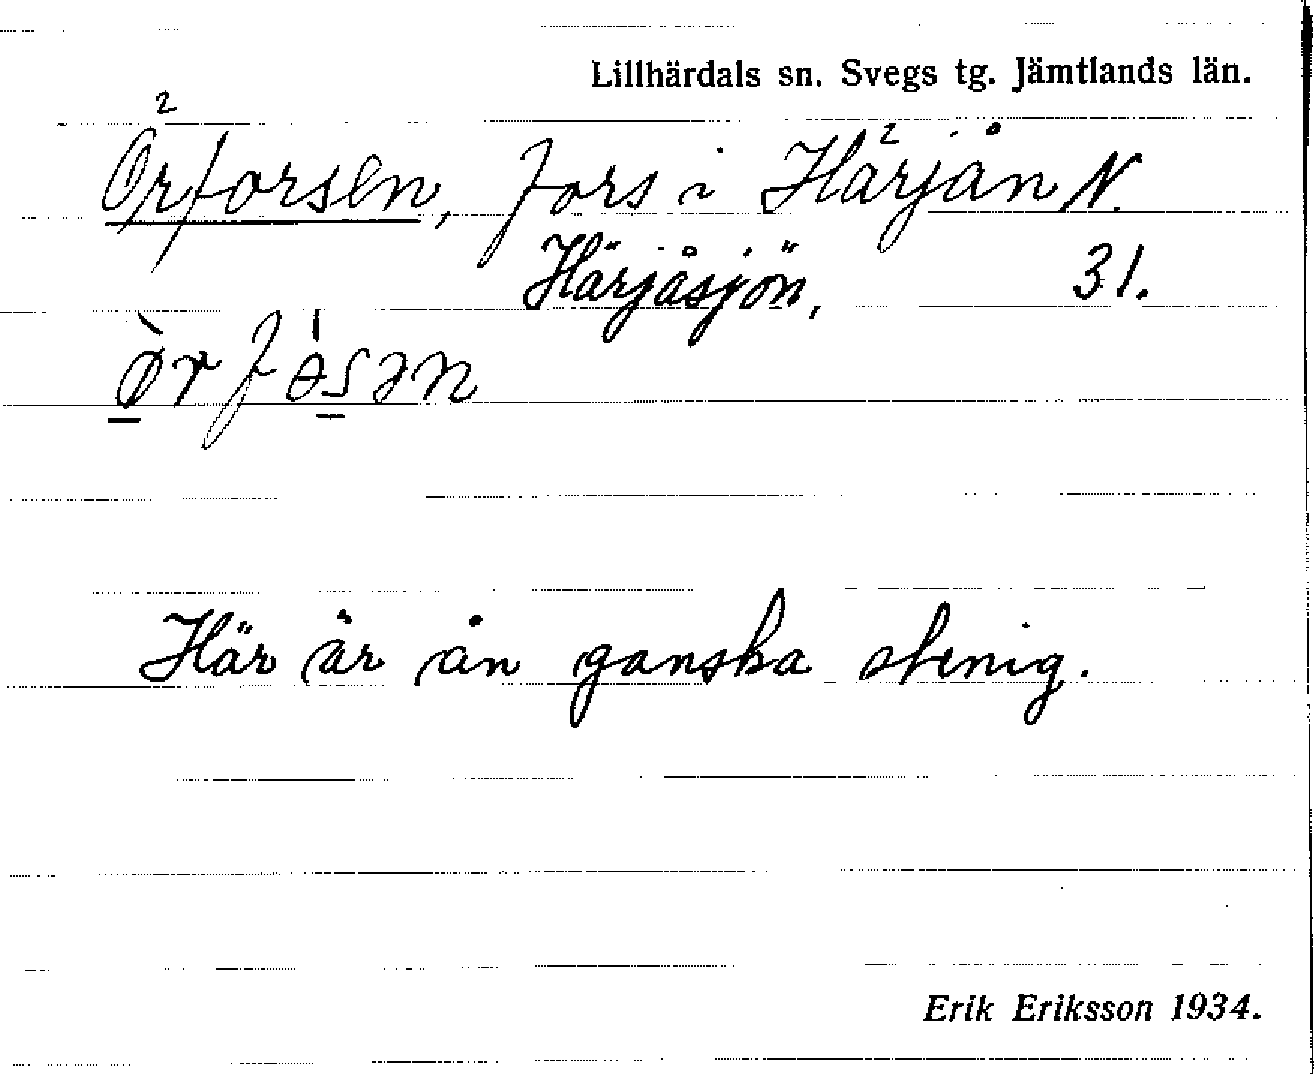 Lillhärdals sn. Svegs tg. Jämtlands län.
Örforsen, fors i Härjån N.
Härjåsjön, 31.
Här är ån ganska stenig.
Erik Eriksson 1934.